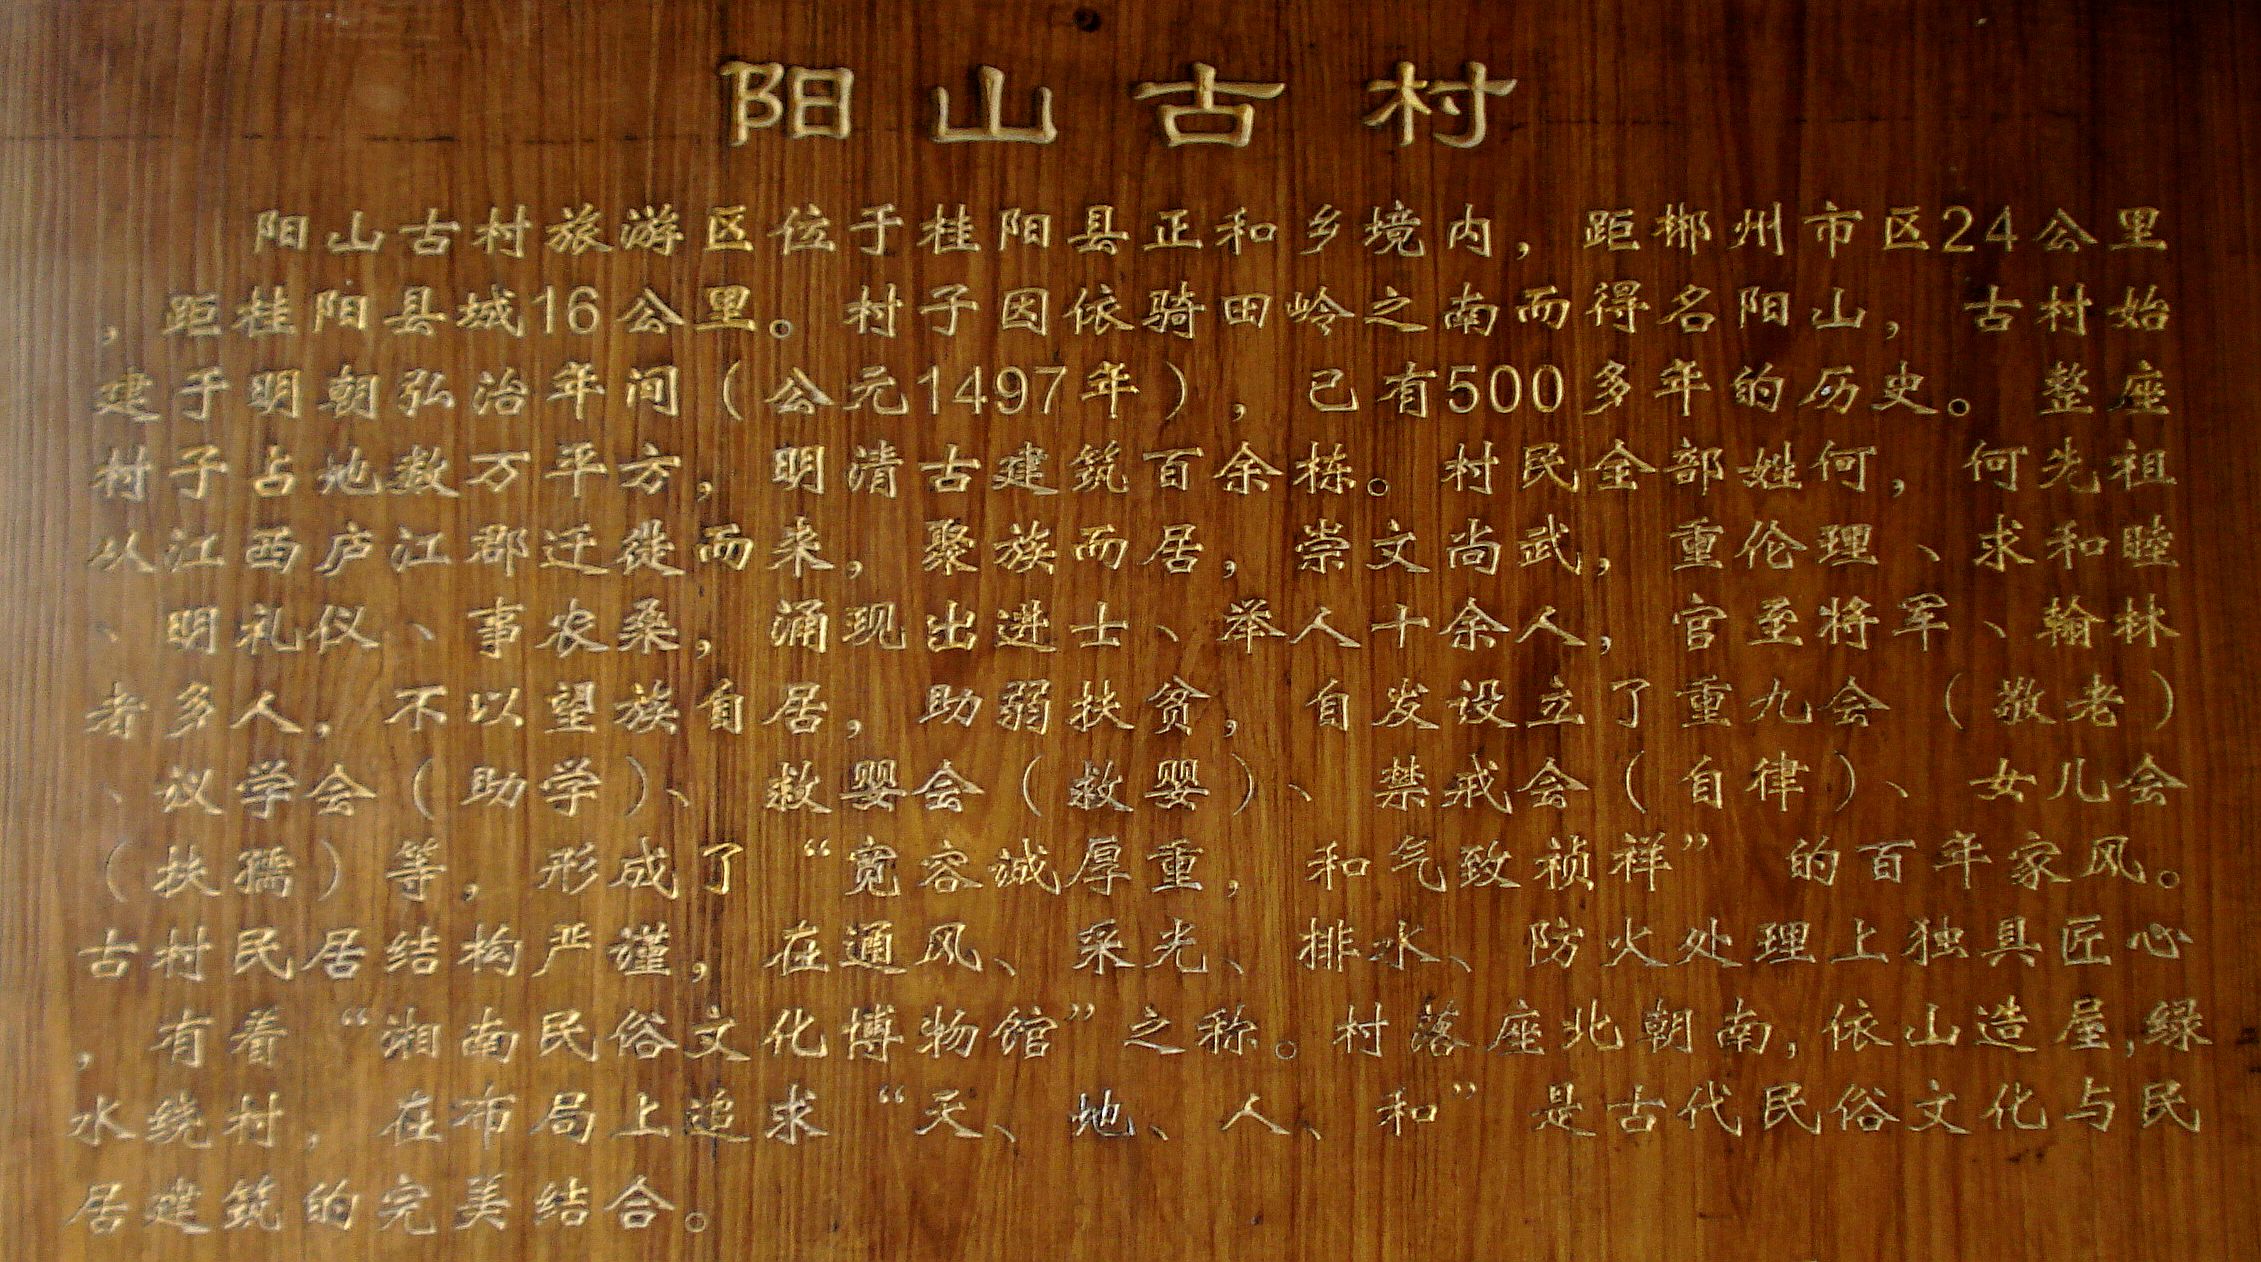 阳山古村
阳山古村旅游区位于桂阳县正和乡境内，距郴州市区24公里
，距桂阳县城16公里。村子因依骑田岭之南而得名阳山，古村始
建于明朝弘治年间（公元1497年），已有500多年的历史。整座
村子占地数万平方，明清古建筑百余栋。村民全部姓何，何先祖
从江西庐江郡迁徙而来，聚族而居，崇文尚武，重伦理、求和睦
、明礼仪、事农桑，涌现出进士、举人十余人，官至将军、翰林
者多人，不以望族自居，助弱扶贫，自发设立了重九会（敬老）
、议学会（助学）、救婴会（救婴）、禁戒会（自律）、女儿会
（扶孺）等，形成了“宽容诚厚重，和气致祯祥”的百年家风。
古村民居结构严谨，在通风、采光、排水、防火处理上独具匠心
，有着“湘南民俗文化博物馆”之称。村落座北朝南，依山造屋，绿
水绕村，在布局上追求“天、地、人、和”是古代民俗文化与民
居建筑的完美结合。